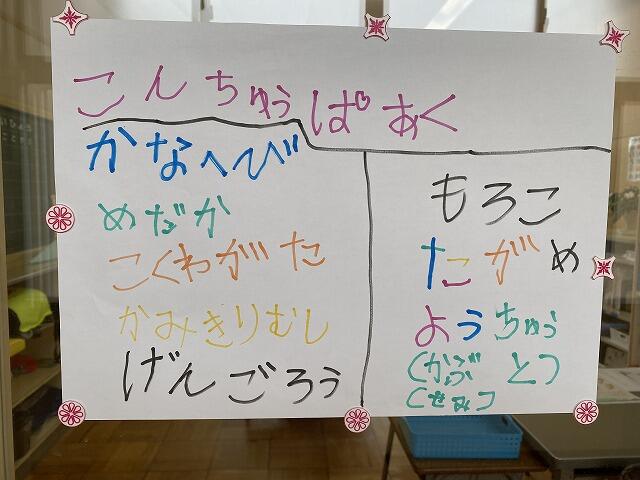 こんちゅうぱあく
かなへび
めだか
こくわがた
かみきりむし
げんごろう
もろこ
たがめ
ようちゅう
(かぶとつ
(せみつ